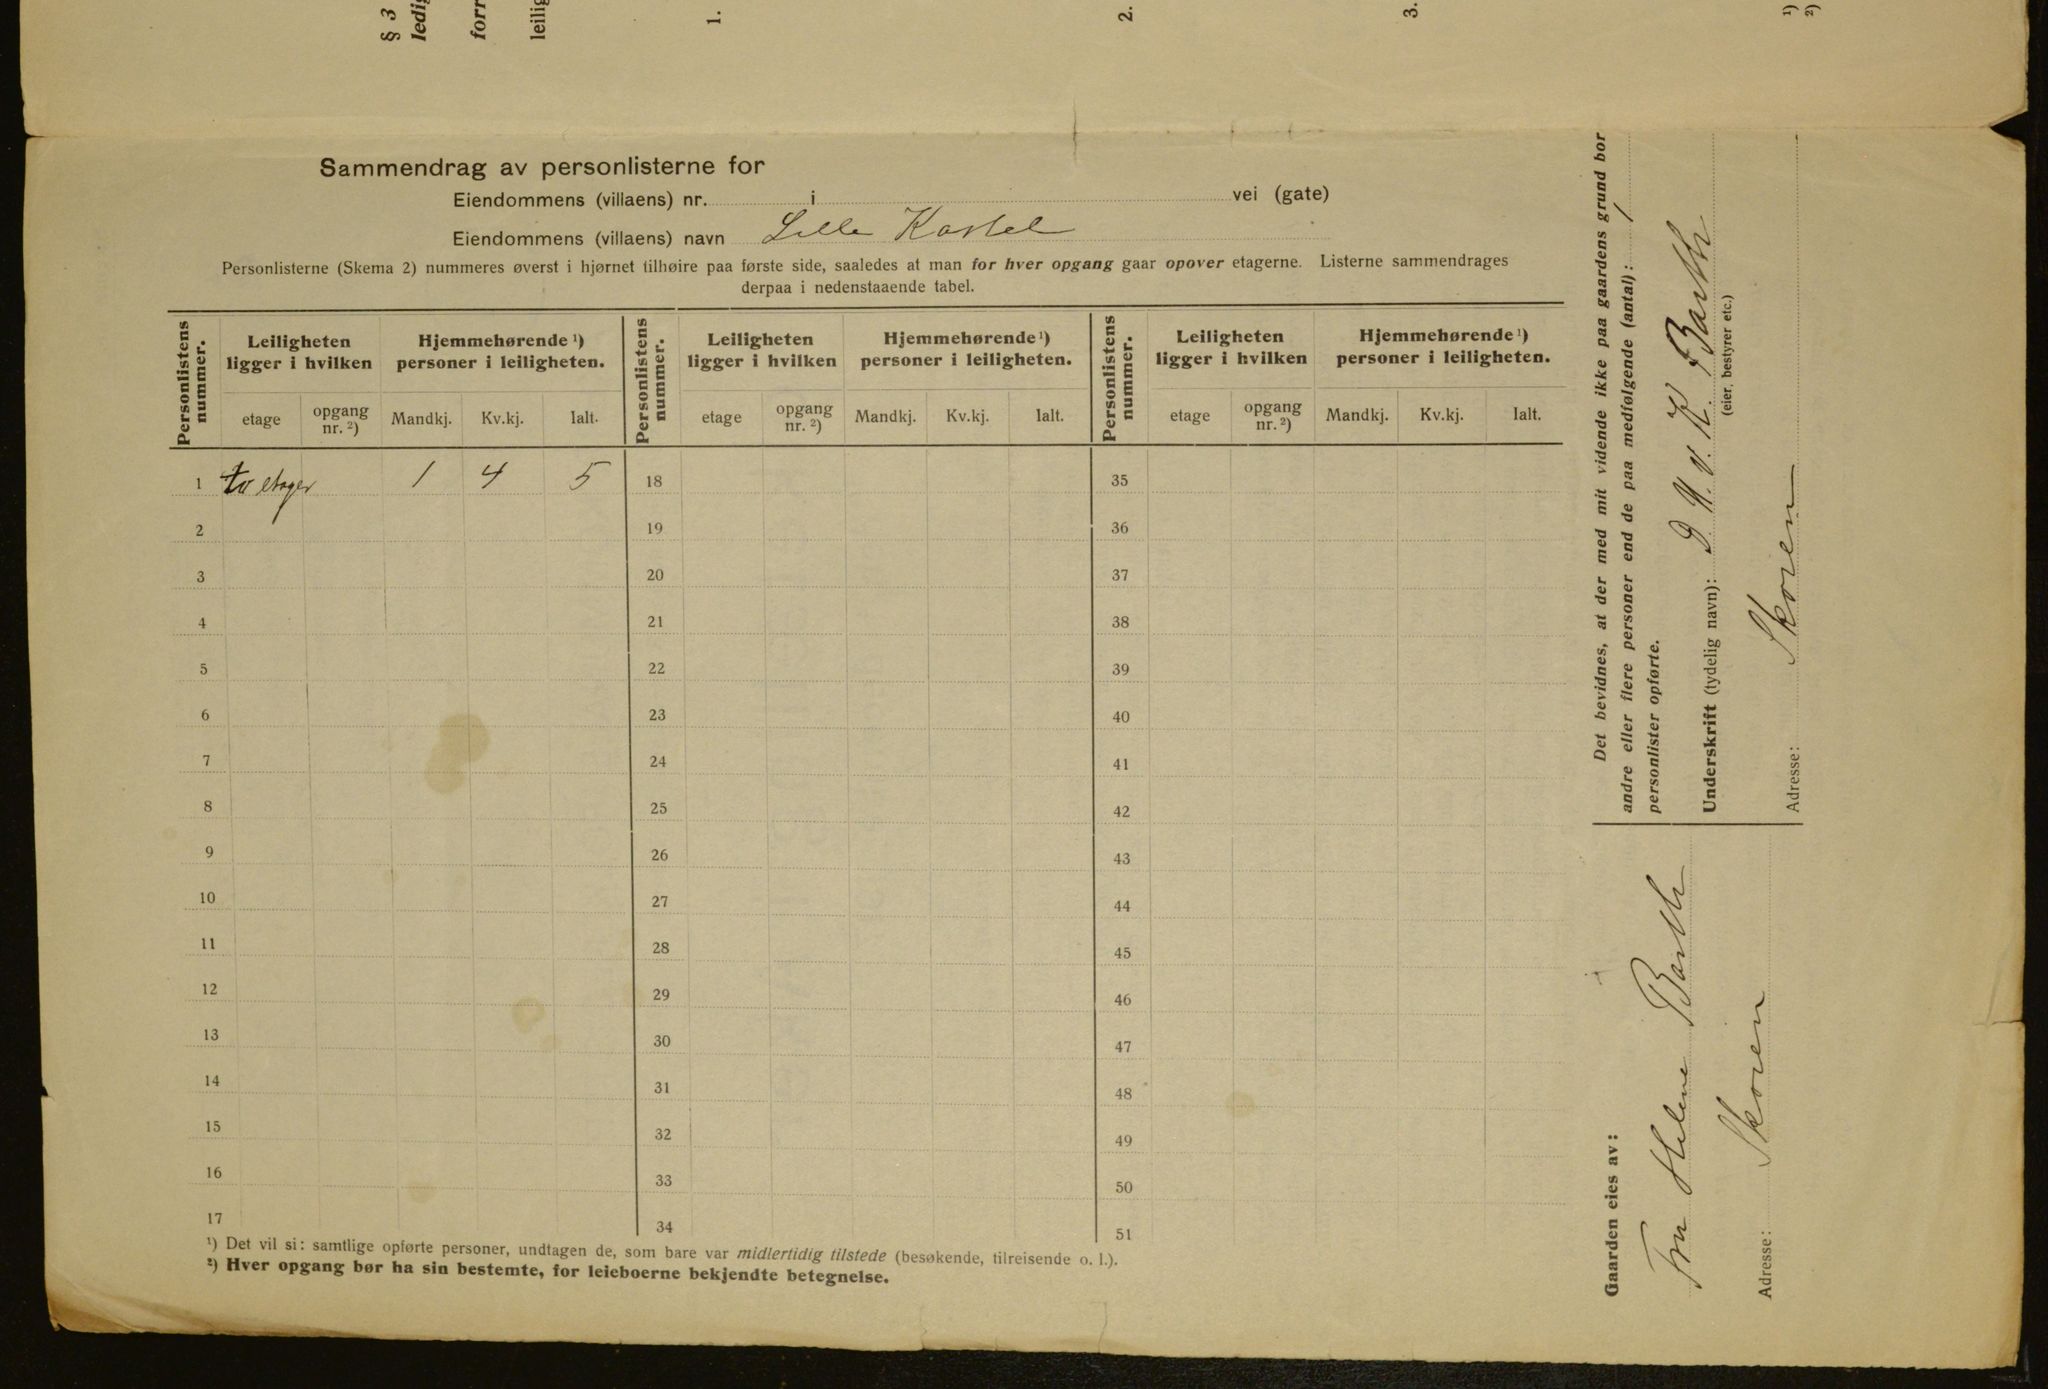 § 3
ledig
forr
leilig
1.
2.
3.
1)
2)
Sammendrag av personlisterne for
Eiendommens (villaens) nr. i vei (gate)
Eiendommens (villaens) navn Lille Kastel
Personlisterne (Skema 2) nummeres øverst i hjørnet tilhøire paa første side, saaledes at man for hver opgang gaar opover etagerne. Listerne sammendrages
derpaa i nedenstaaende tabel.
Personlistens nummer. Leiligheten ligger i hvilken Hjemmehørende 1) personer i leiligheten. Personlistens nummer. Leiligheten ligger i hvilken Hjemmehørende 1) personer i leiligheten. Personlistens nummer. Leiligheten ligger i hvilken Hjemmehørende 1) personer i leiligheten.
etage opgang nr. 2) Mandkj. Kv.kj. Ialt. etage opgang nr. 2) Mandkj. Kv.kj. Ialt. etage opgang nr. 2) Mandkj. Kv.kj. Ialt.
1 to etager 1 4 5 18 35
2 19 36
3 20 37
4 21 38
5 22 39
6 23 40
7 24 41
8 25 42
9 26 43
10 27 44
11 28 45
12 29 46
13 30 47
14 31 48
15 32 49
16 33 50
17 34 51
1) Det vil si: samtlige opførte personer, undtagen de, som bare var midlertidig tilstede (besøkende, tilreisende o. l.).
2) Hver opgang bør ha sin bestemte, for leieboerne bekjendte betegnelse.
Gaarden eies av:
Fru Helene Barth
Adresse: Skoien
Det bevidnes, at der med mit vidende ikke paa gaardens grund bor
andre eller flere personer end de paa medfølgende (antal): 1
personlister opførte.
Underskrift (tydelig navn): K. Barth
(eier, bestyrer etc.)
Adresse: Skoien